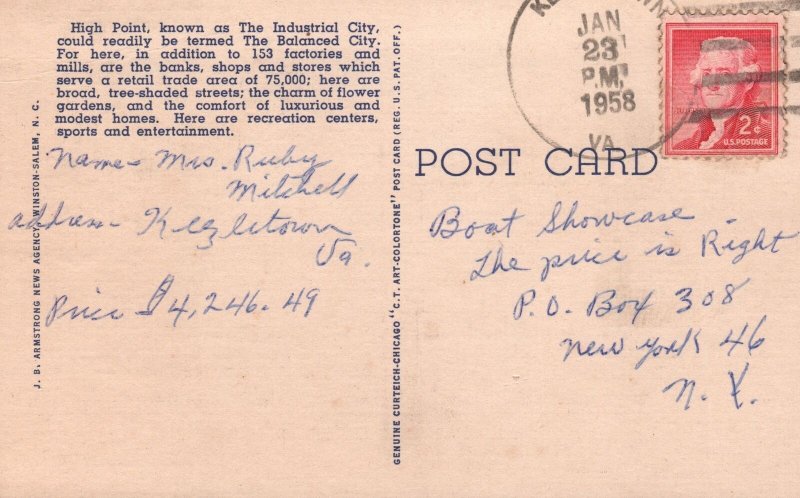 High Point, known as The Industrial City,
could readily be termed The Balanced City.
For here, in addition to 153 factories and
mills, are the banks, shops and stores which
serve a retail trade area of 75,000; here are
broad, tree-shaded streets; the charm of flower
gardens, and the comfort of luxurious and
modest homes. Here are recreation centers,
sports and entertainment.
Name- Mrs. Ruby
Mitchell
address- Keezletown
Va.
Price $4,246.49
J. B. ARMSTRONG NEWS AGENCY, WINSTON-SALEM, N. C.
GENUINE CURTEICH-CHICAGO "C.T. ART-COLORTONE" POST CARD (REG. U.S. PAT. OFF.)
JAN
23
P.M.
1958
VA
2¢
U.S. POSTAGE
POST CARD
Boat Showcase
The price is Right
P.O. Box 308
New York 46
N.Y.